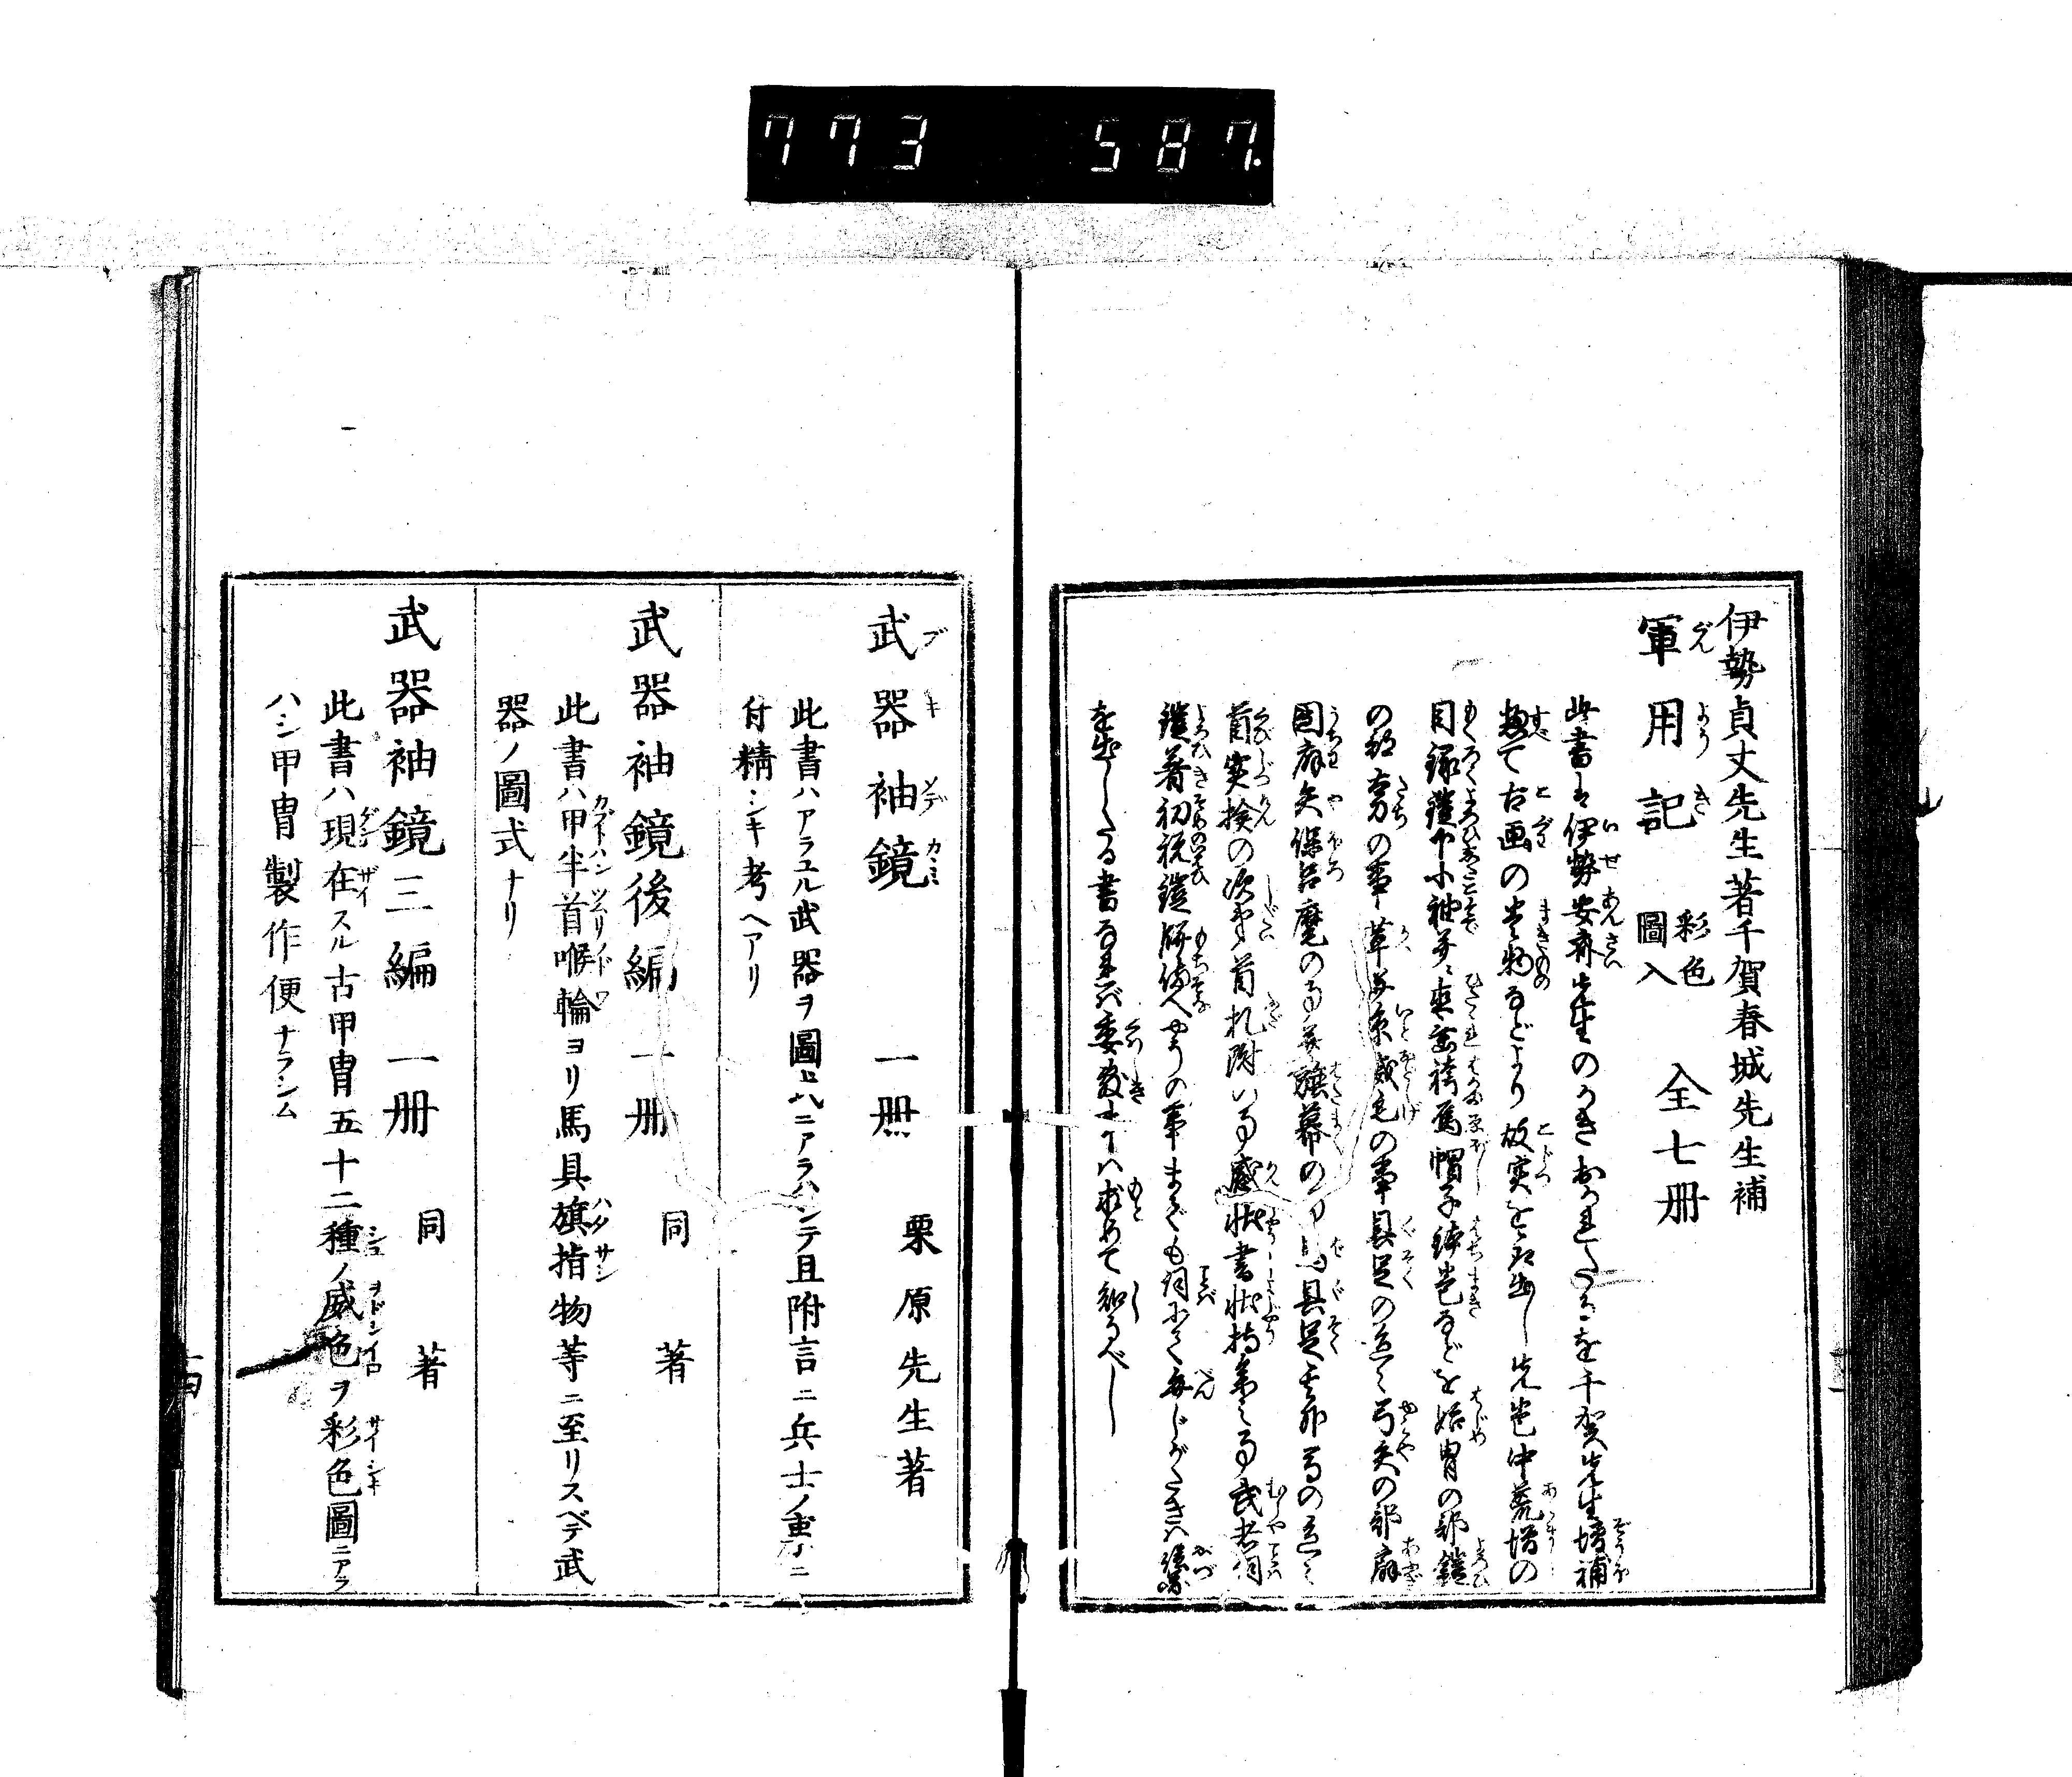 773 587.
伊勢貞丈先生著千賀春城先生補
軍用記 彩色圖入 全七冊
此書は伊勢安斎先生のかきおかれたるを千賀先生増補
惣て古画の巻物などより故実をとり出し先巻中荒増の
目録鎧下小袖并直垂袴烏帽子鉢巻などを始冑の部鎧
の部太刀の事革并糸威毛の事具足の弓矢の部扇
団扇矢保呂麾の事并旗幕の馬具足其外
首実検の次第首札附る事感状書状持参之事武者詞
鎧着初祝鎧餅備へやうの事まで
を出したる書なれば委敷は求めて知るべし
武器袖鏡 一冊 栗原先生著
此書ハアラユル武器ヲ圖シテ且附言ニ兵士ノ
付精シキ考ヘアリ
武器袖鏡後編 一冊 同著
此書ハ甲半首喉輪ヨリ馬具旗指物等ニ至リスベテ武
器ノ圖式ナリ
武器袖鏡三編 一冊 同著
此書ハ現在スル古甲冑五十二種ノ威色ヲ彩色圖ニアラ
ハシ甲冑製作便ナラシム